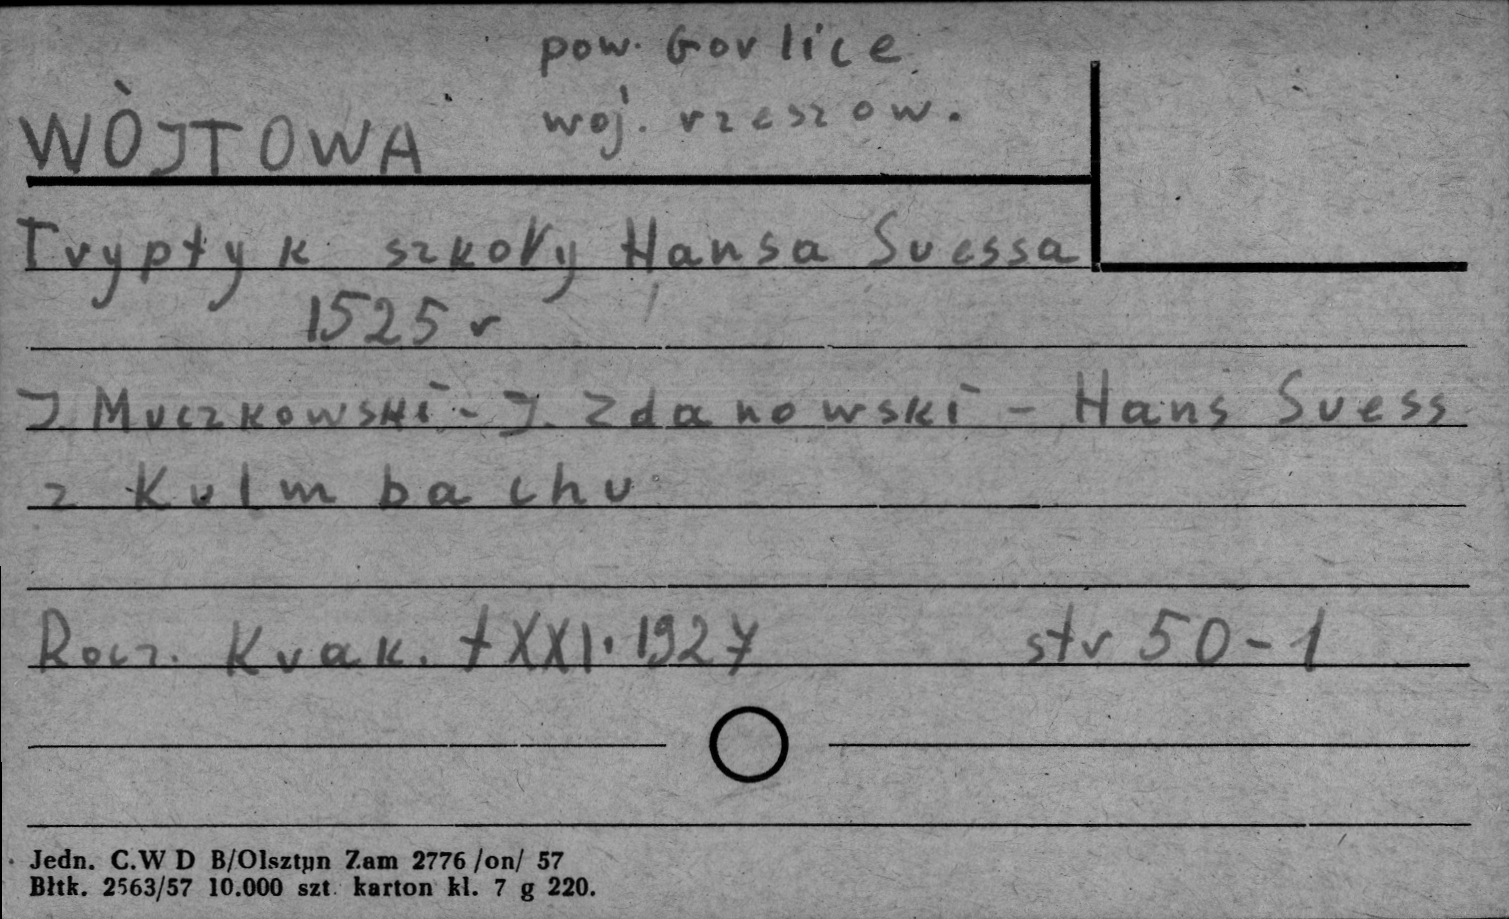 pow. Gorlice
WÓJTOWA woj. rzeszow.
Tryptyk szkoły Hansa Suessa
1525 r
J. Muczkowski - J. Zdanowski - Hans Suess
z Kulmbachu
Rocz. Krak. t XXI. 1927 str 50-1
Jedn. C.W D B/Olsztyn Zam 2776 /on/ 57
Błtk. 2563/57 10.000 szt. karton kl. 7 g 220.